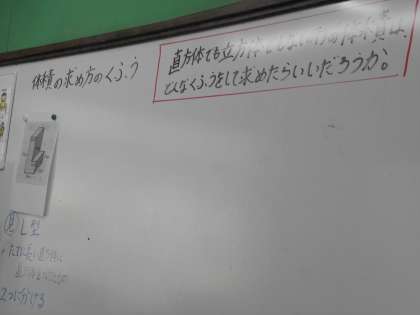 体積の求め方のくふう
直方体でも立方体でもない形の体積は、
どんなくふうをして求めたらいいだろうか。
見 L型
2つに分ける